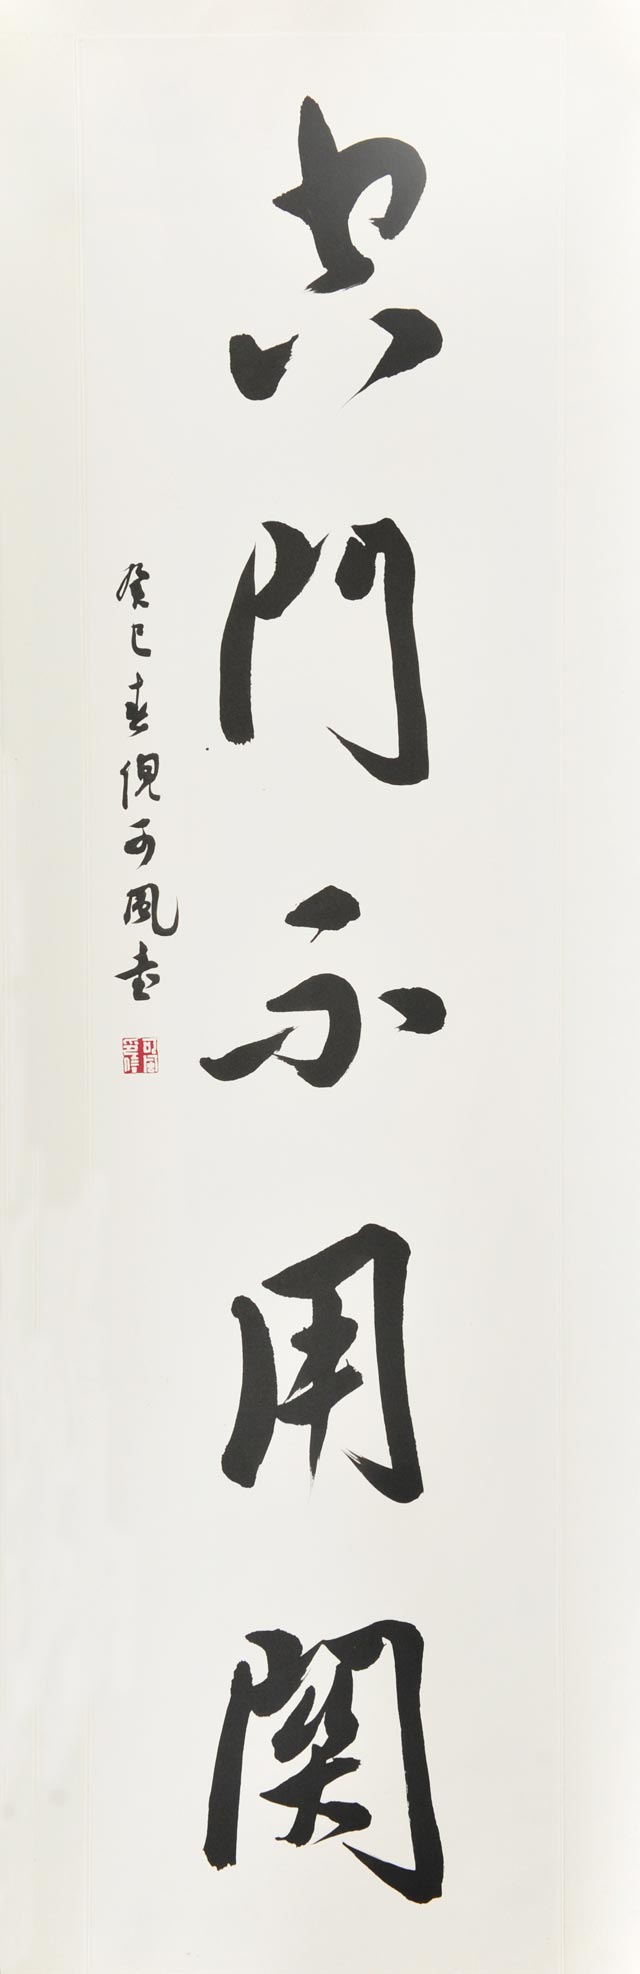 門不用關
癸巳春倪可風書